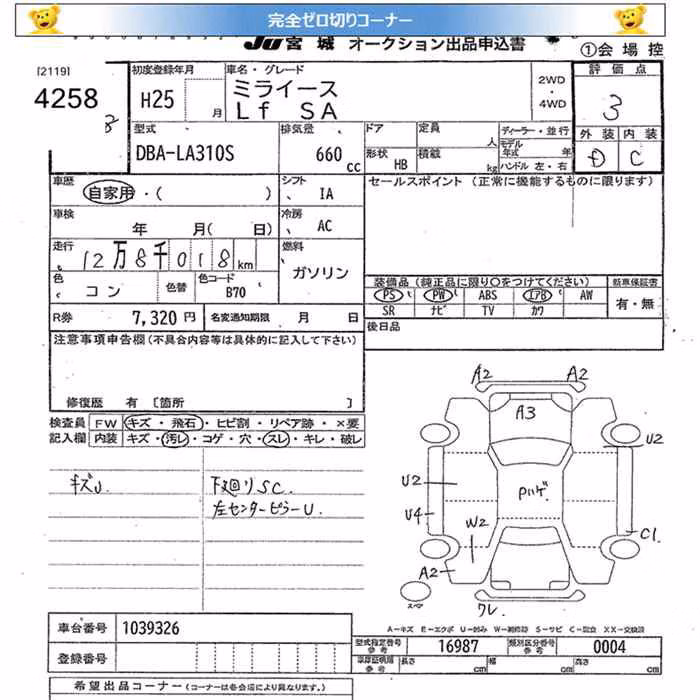 完全ゼロ切りコーナー
JU 宮城 オークション出品申込書
①会場控
[2119]
4258
初度登録年月
H25
月
車名・グレード
ミライース
Lf SA
2WD
・
4WD
評価点
3
外装 内装
D C
型式
DBA-LA310S
排気量
660
cc
ドア
定員
人
形状 HB
積載
kg
ディーラー・並行
モデル年式 年
ハンドル 左・右
車歴
自家用・( )
シフト
IA
車検
年 月( 日)
冷房
AC
走行
12万8千018km
燃料
ガソリン
色
コン
色替
色コード
B70
R券 7,320円
名変通知期限 月 日
セールスポイント (正常に機能するものに限ります)
装備品(純正品に限り○をつけてください)
PS PW ABS エアB AW
SR ナビ TV カワ
新車保証書
有・無
後日品
注意事項申告欄(不具合内容等は具体的に記入して下さい)
修復歴 有 [箇所 ]
検査員記入欄
FW キズ・飛石・ヒビ割・リペア跡・×要
内装 キズ・汚レ・コゲ・穴・スレ・キレ・破レ
キズU
下廻りSC.
左センターピラーU.
A2 A2
A3
U2
U2
Pハゲ
U4
W2
C1.
A2
スペア
ワレ
A-キズ E-エクボ U-凹み W-補修跡 S-サビ C-腐食 XX-交換済
車台番号 1039326
登録番号
型式指定番号
参考
16987
類別区分番号
参考
0004
車庫証明用
参考
長さ cm
幅 cm
高さ cm
希望出品コーナー(コーナーは各会場により異なります。)